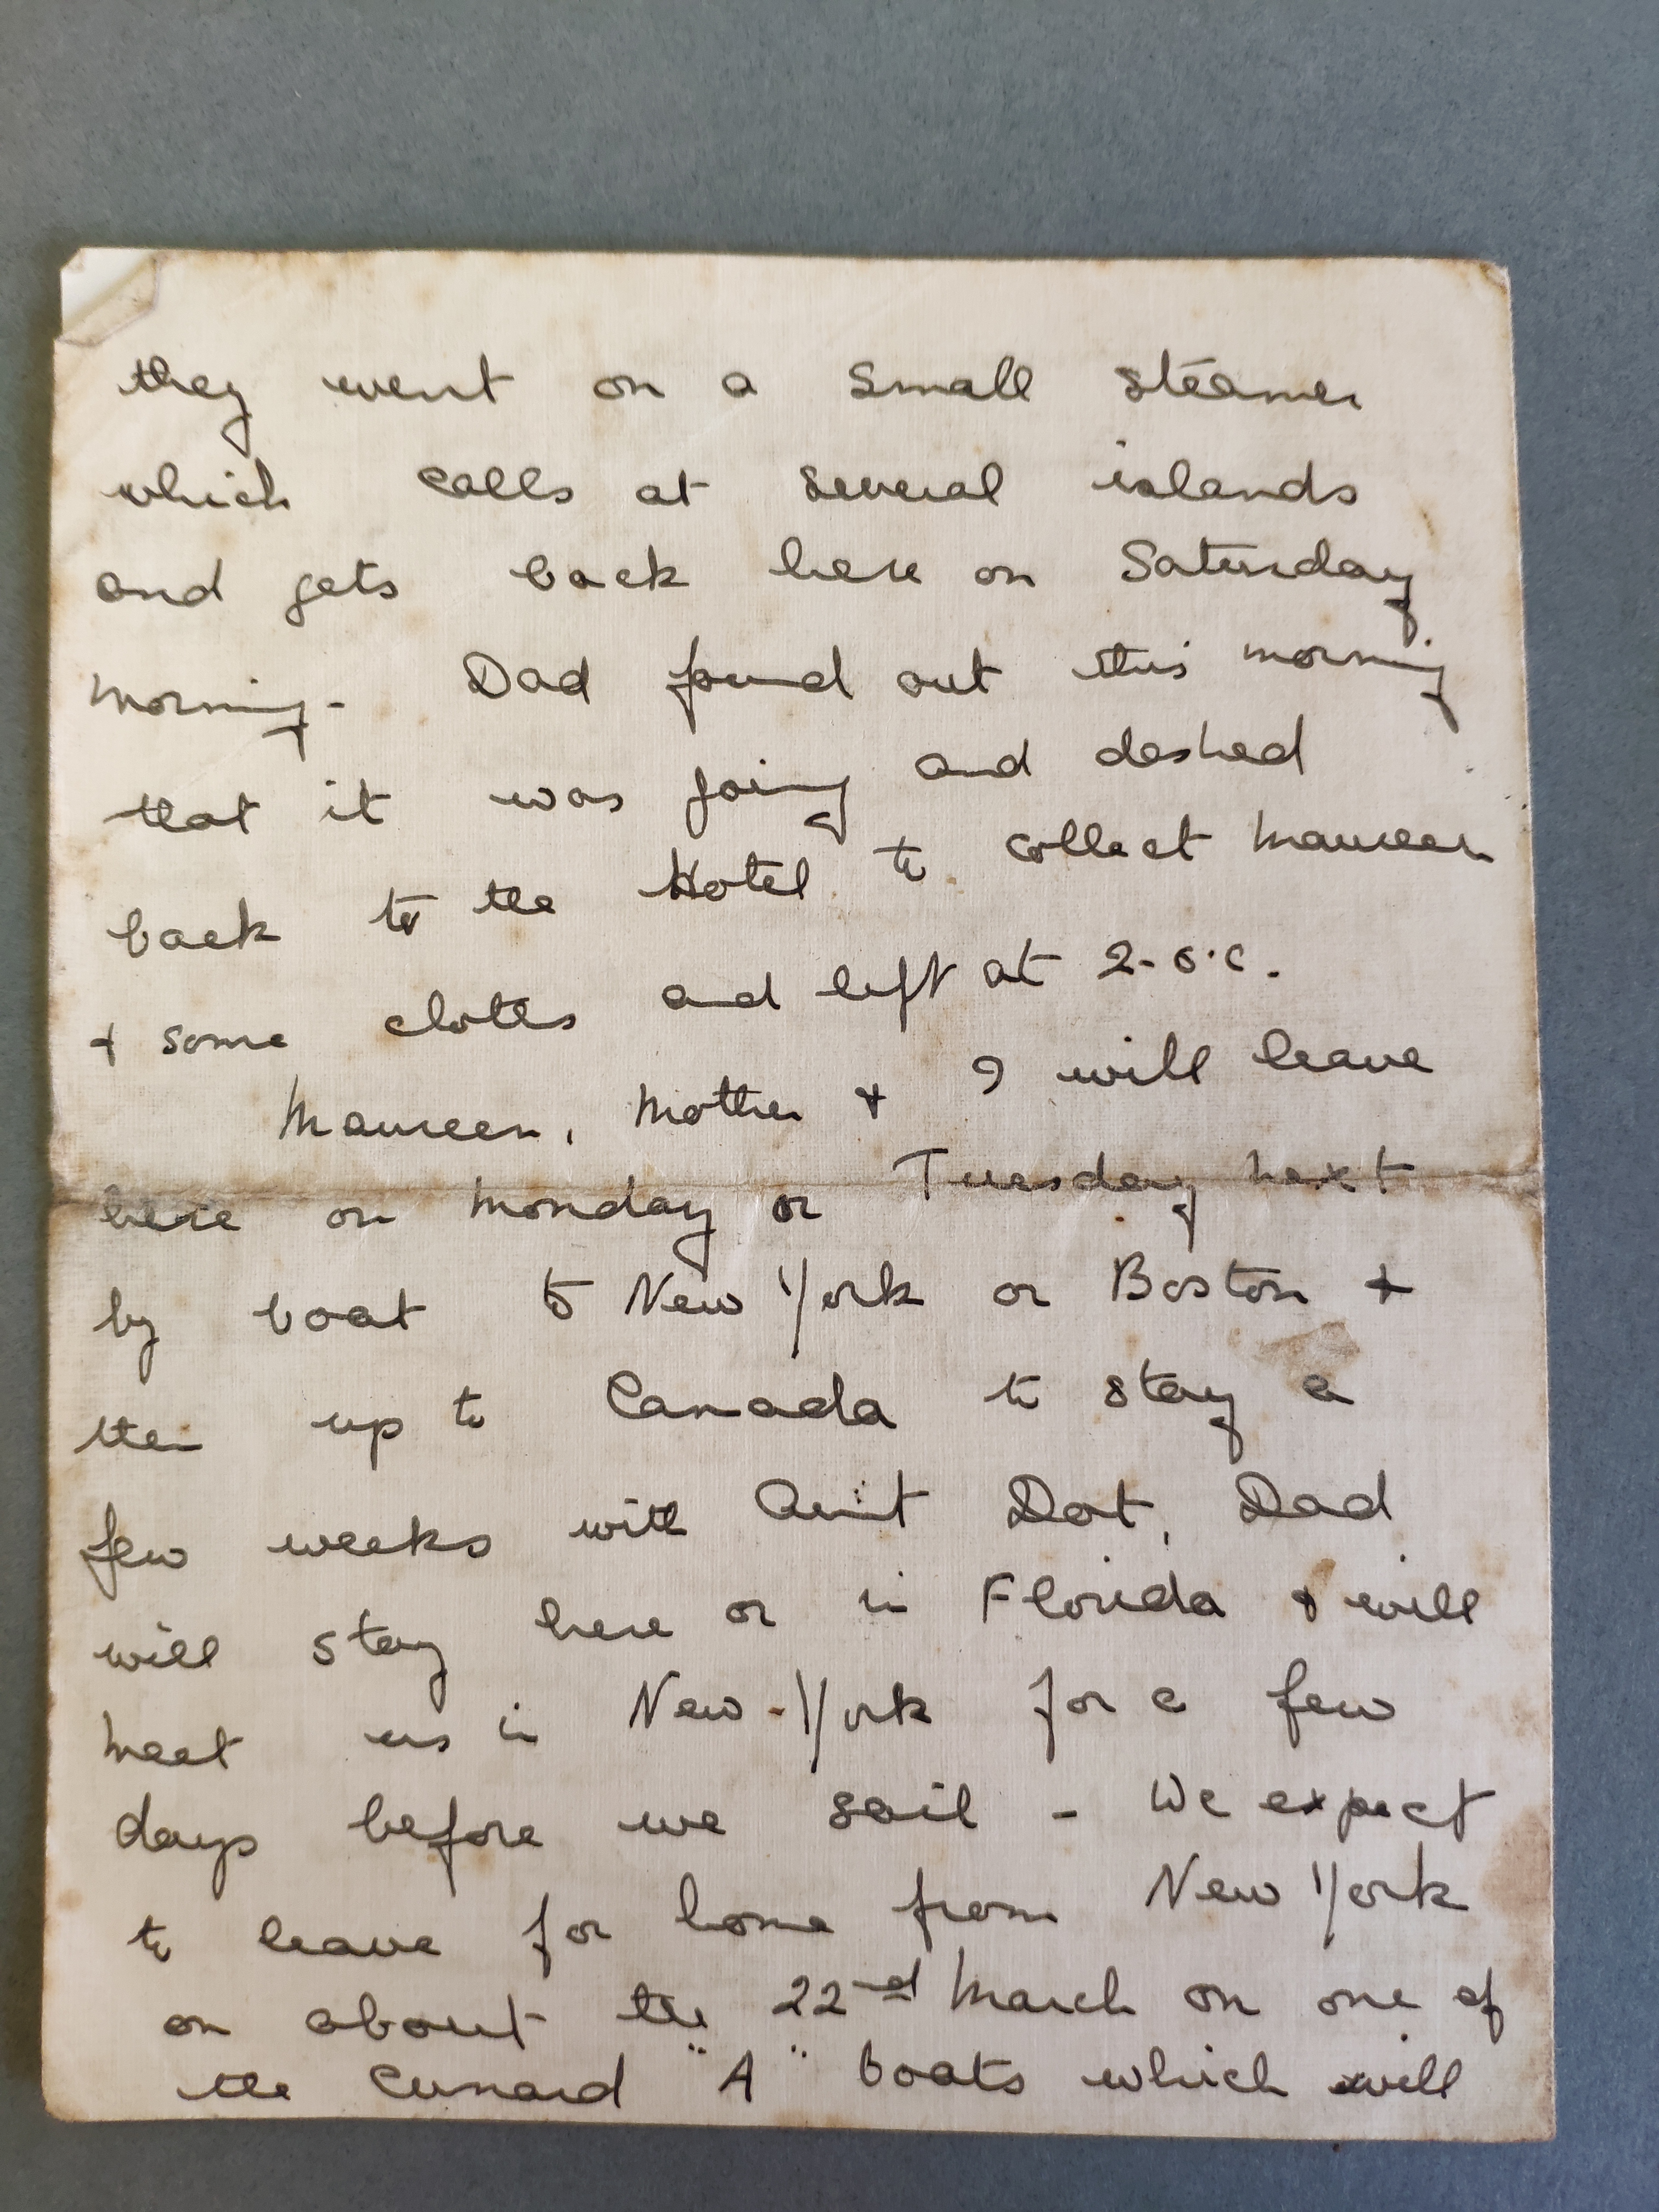 they went on a small steamer
which calls at several islands
and gets back here on Saturday
morning - Dad found out this morning
that it was going and dashed
back to the Hotel to collect Maureen
+ some clothes and left at 2-o'c.
Maureen, Mother + I will leave
here on Monday or Tuesday next
by boat to New York or Boston +
then up to Canada to stay a
few weeks with Aunt Dot, Dad
will stay here or in Florida + will
meet us in New-York for a few
days before we sail - We expect
to leave for home from New York
on about the 22nd March on one of
the Cunard "A" boats which will